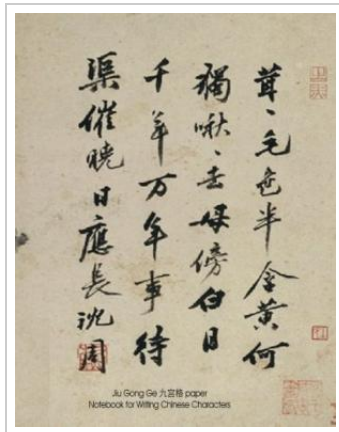 茸、毛色半含黄何
獨啾、去母傍白日
千年万年事待
渠催曉日應長沈周
Jiu Gong Ge 九宮格 paper
Notebook for Writing Chinese Characters